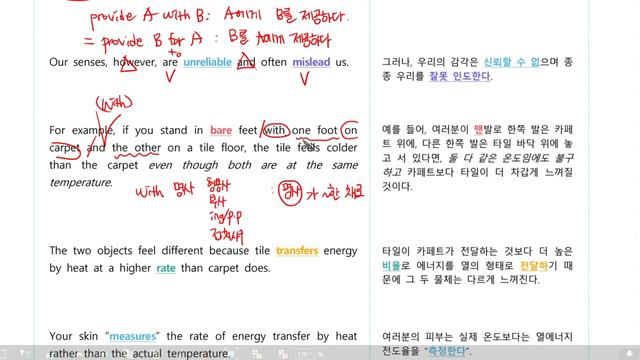 provide A with B: A에게 B를 제공하다.
= provide B for A : B를 A에게 제공하다
to
Our senses, however, are unreliable and often mislead us.
그러나, 우리의 감각은 신뢰할 수 없으며 종
종 우리를 잘못 인도한다.
V V
(with)
For example, if you stand in bare feet with one foot on
carpet and the other on a tile floor, the tile feels colder
than the carpet even though both are at the same
temperature.
예를 들어, 여러분이 맨발로 한쪽 발은 카페
트 위에, 다른 한쪽 발은 타일 바닥 위에 놓
고 서 있다면, 둘 다 같은 온도임에도 불구
하고 카페트보다 타일이 더 차갑게 느껴질
것이다.
with 명사 형용사 : 명사가 ~한 채로
부사
ing/p.p
전치사구
The two objects feel different because tile transfers energy
by heat at a higher rate than carpet does.
타일이 카페트가 전달하는 것보다 더 높은
비율로 에너지를 열의 형태로 전달하기 때
문에 그 두 물체는 다르게 느껴진다.
Your skin “measures” the rate of energy transfer by heat
rather than the actual temperature.
여러분의 피부는 실제 온도보다는 열에너지
전도율을 “측정한다”.